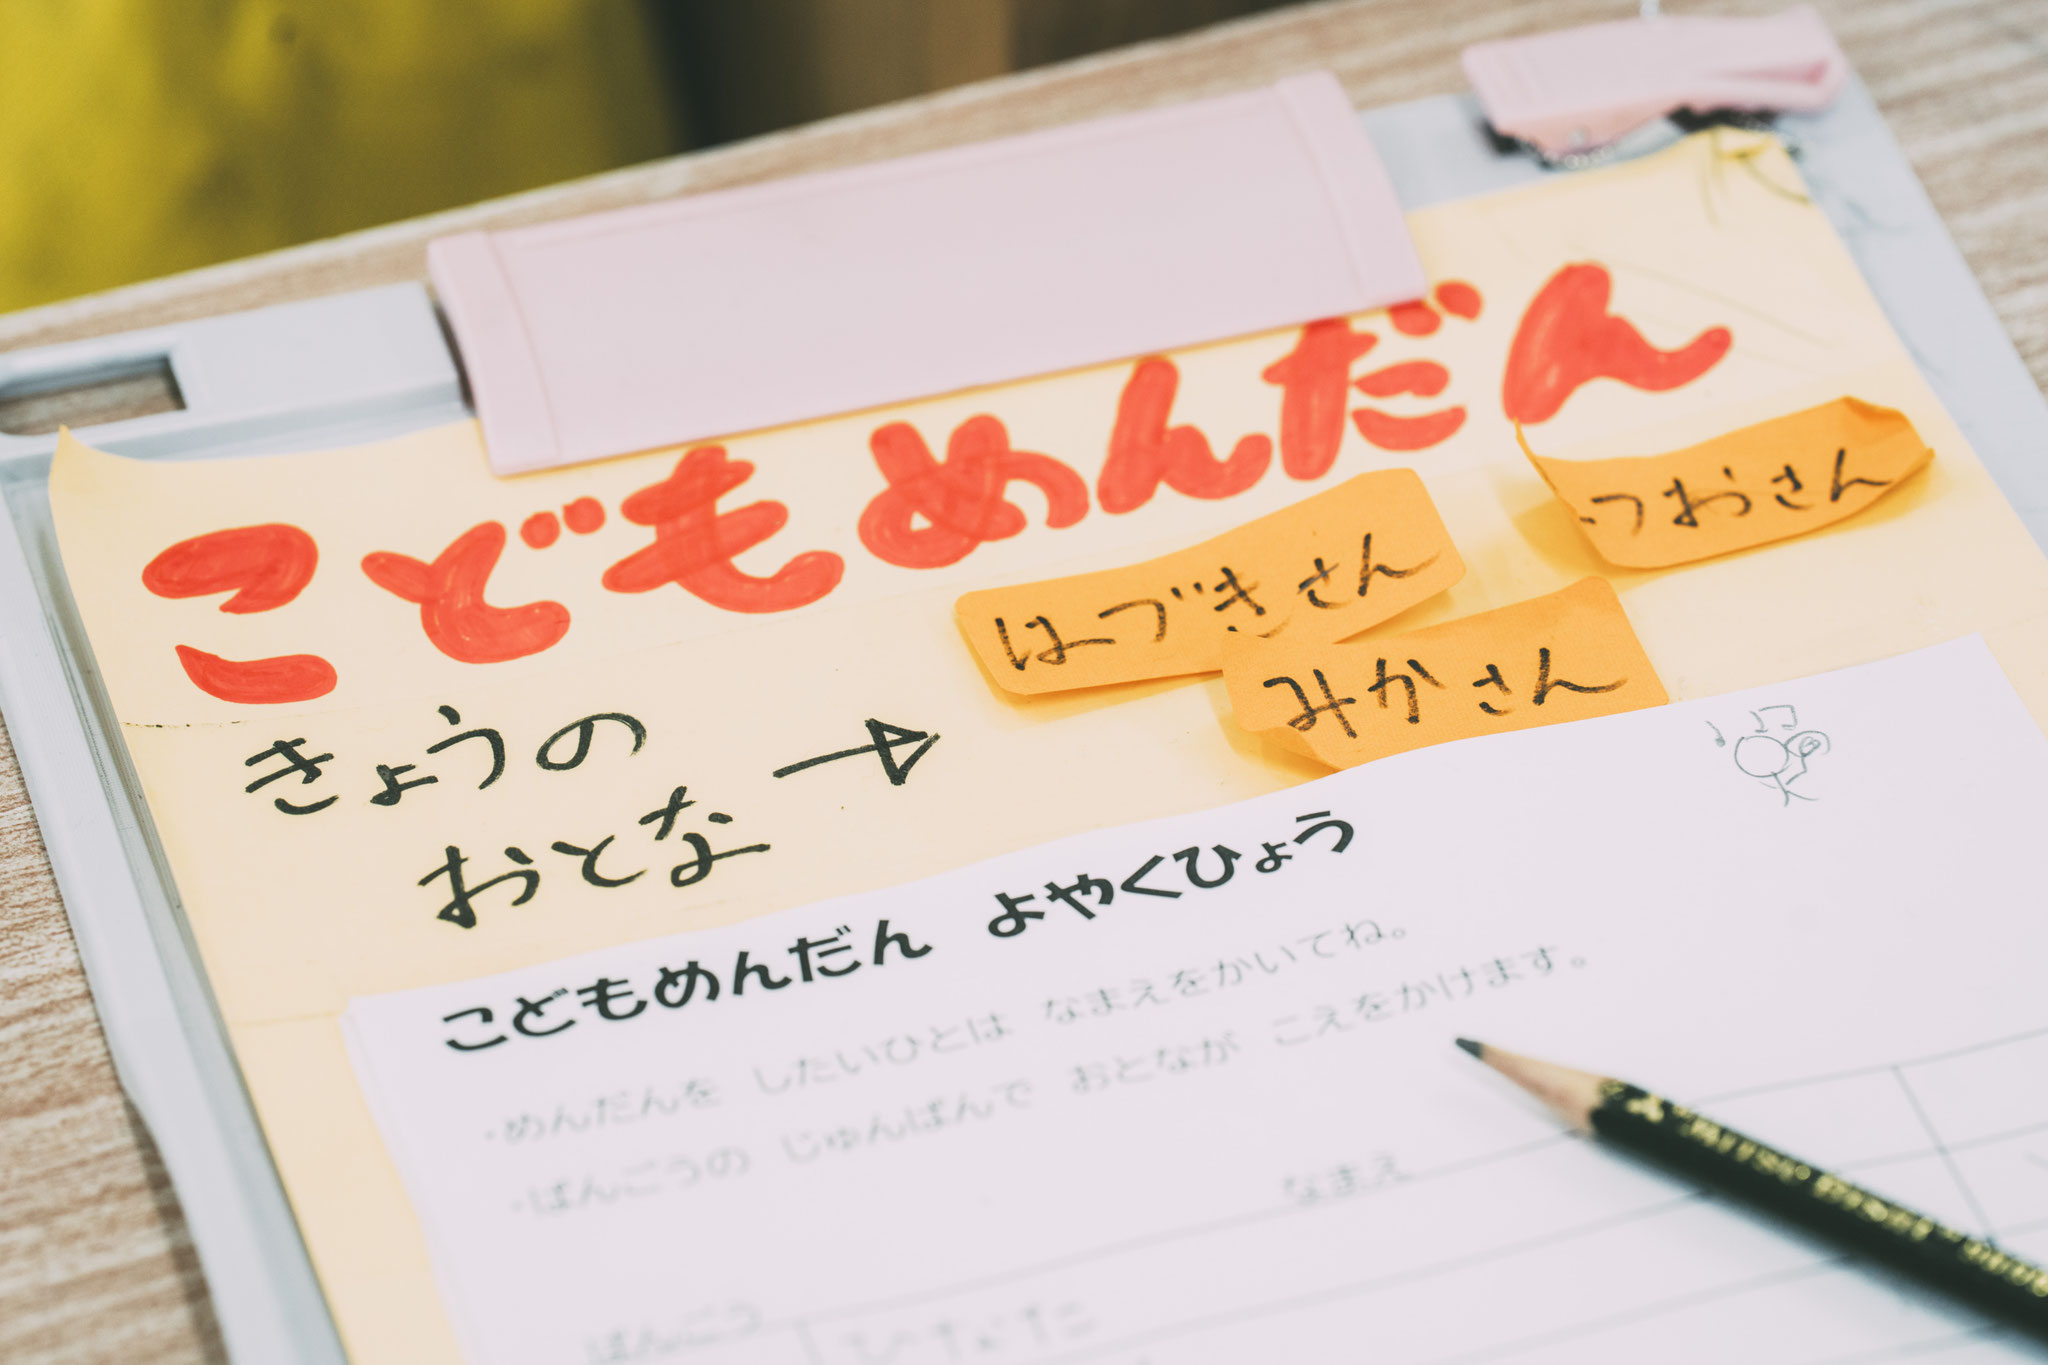 こどもめんだん
きょうの
おとな→
はづきさん
つおさん
みかさん
こどもめんだん よやくひょう
・めんだんを したいひとは なまえをかいてね。
・ばんごうの じゅんばんで おとなが こえをかけます。
なまえ
ばんごう
ひなた